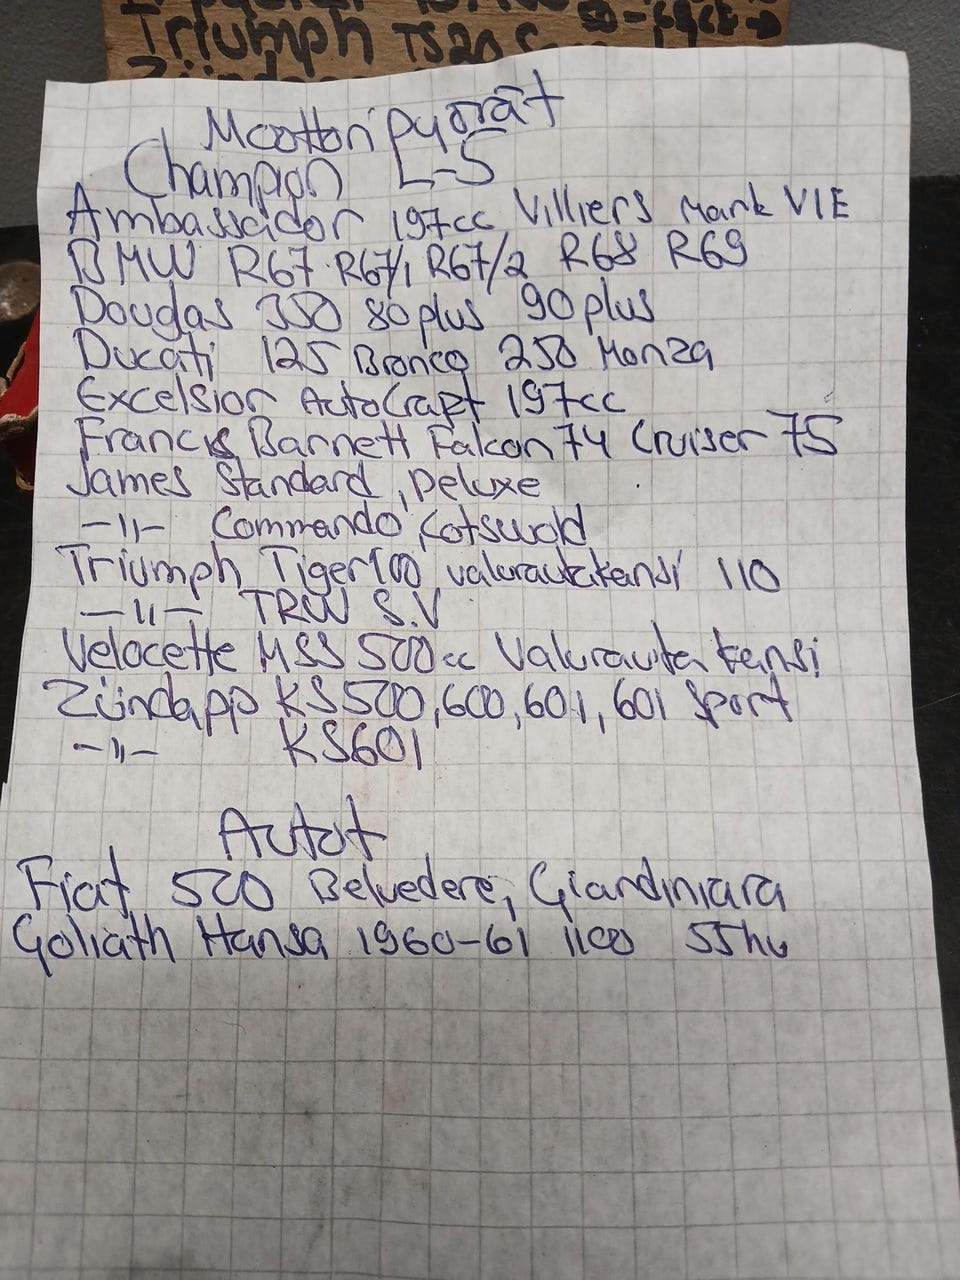 Triumph TS20
Moottoripyörät
Champion L-5
Ambassador 197cc Villiers Mark VIE
BMW R67 R67/1 R67/2 R68 R69
Douglas 350 80plus 90plus
Ducati 125 Bronco 250 Monza
Excelsior AutoCrapt 197cc
Francis Barnett Falcon 74 Cruiser 75
James Standard, Deluxe
-11- Commando, Cotswold
Triumph Tiger 100 valurautakansi 110
-11- TRW S.V
Velocette MSS 500cc Valurauta kansi
Zündapp KS500,600,601,601 Sport
-11- KS601
Autot
Fiat 500 Belvedere, Giardiniara
Goliath Hansa 1960-61 1100 55hv